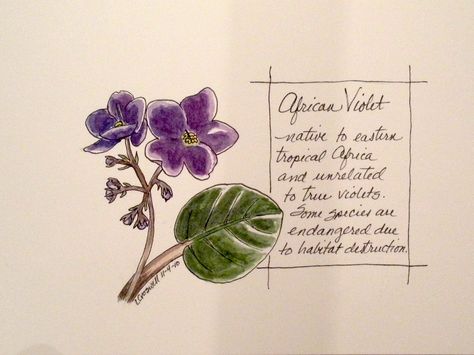 African Violet
native to eastern
tropical Africa
and unrelated
to true violets.
Some species are
endangered due
to habitat destruction.
11-9-10